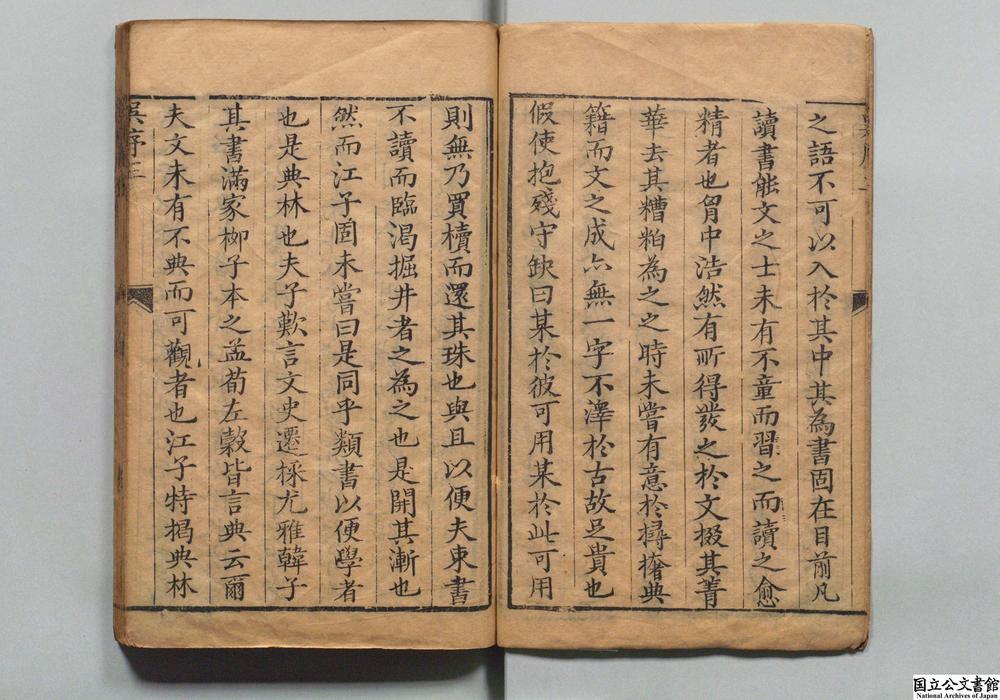 之語不可以入於其中其為書固在目前凡
讀書能文之士未有不童而習之而讀之愈
精者也胷中浩然有所得發之於文掇其菁
華去其糟粕為之之時未嘗有意於撏撦典
籍而文之成亦無一字不澤於古故足貴也
假使抱殘守缺曰某於彼可用某於此可用
則無乃買櫝而還其珠也與且以便夫束書
不讀而臨渴掘井者之為之也是開其漸也
然而江子固未嘗曰是同乎類書以便學者
也是典林也夫子歎言文史遷採尤雅韓子
其書滿家柳子本之孟荀左穀皆言典云爾
夫文未有不典而可觀者也江子特揭典林
吳序三
国立公文書館
National Archives of Japan